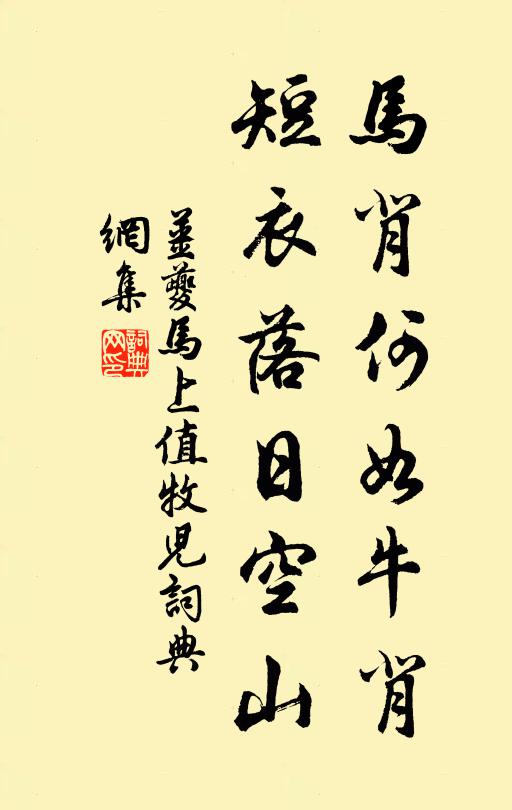 馬背何如牛背
短衣落日空山
薑夔馬上值牧兒詞典
網集
詞典
网印